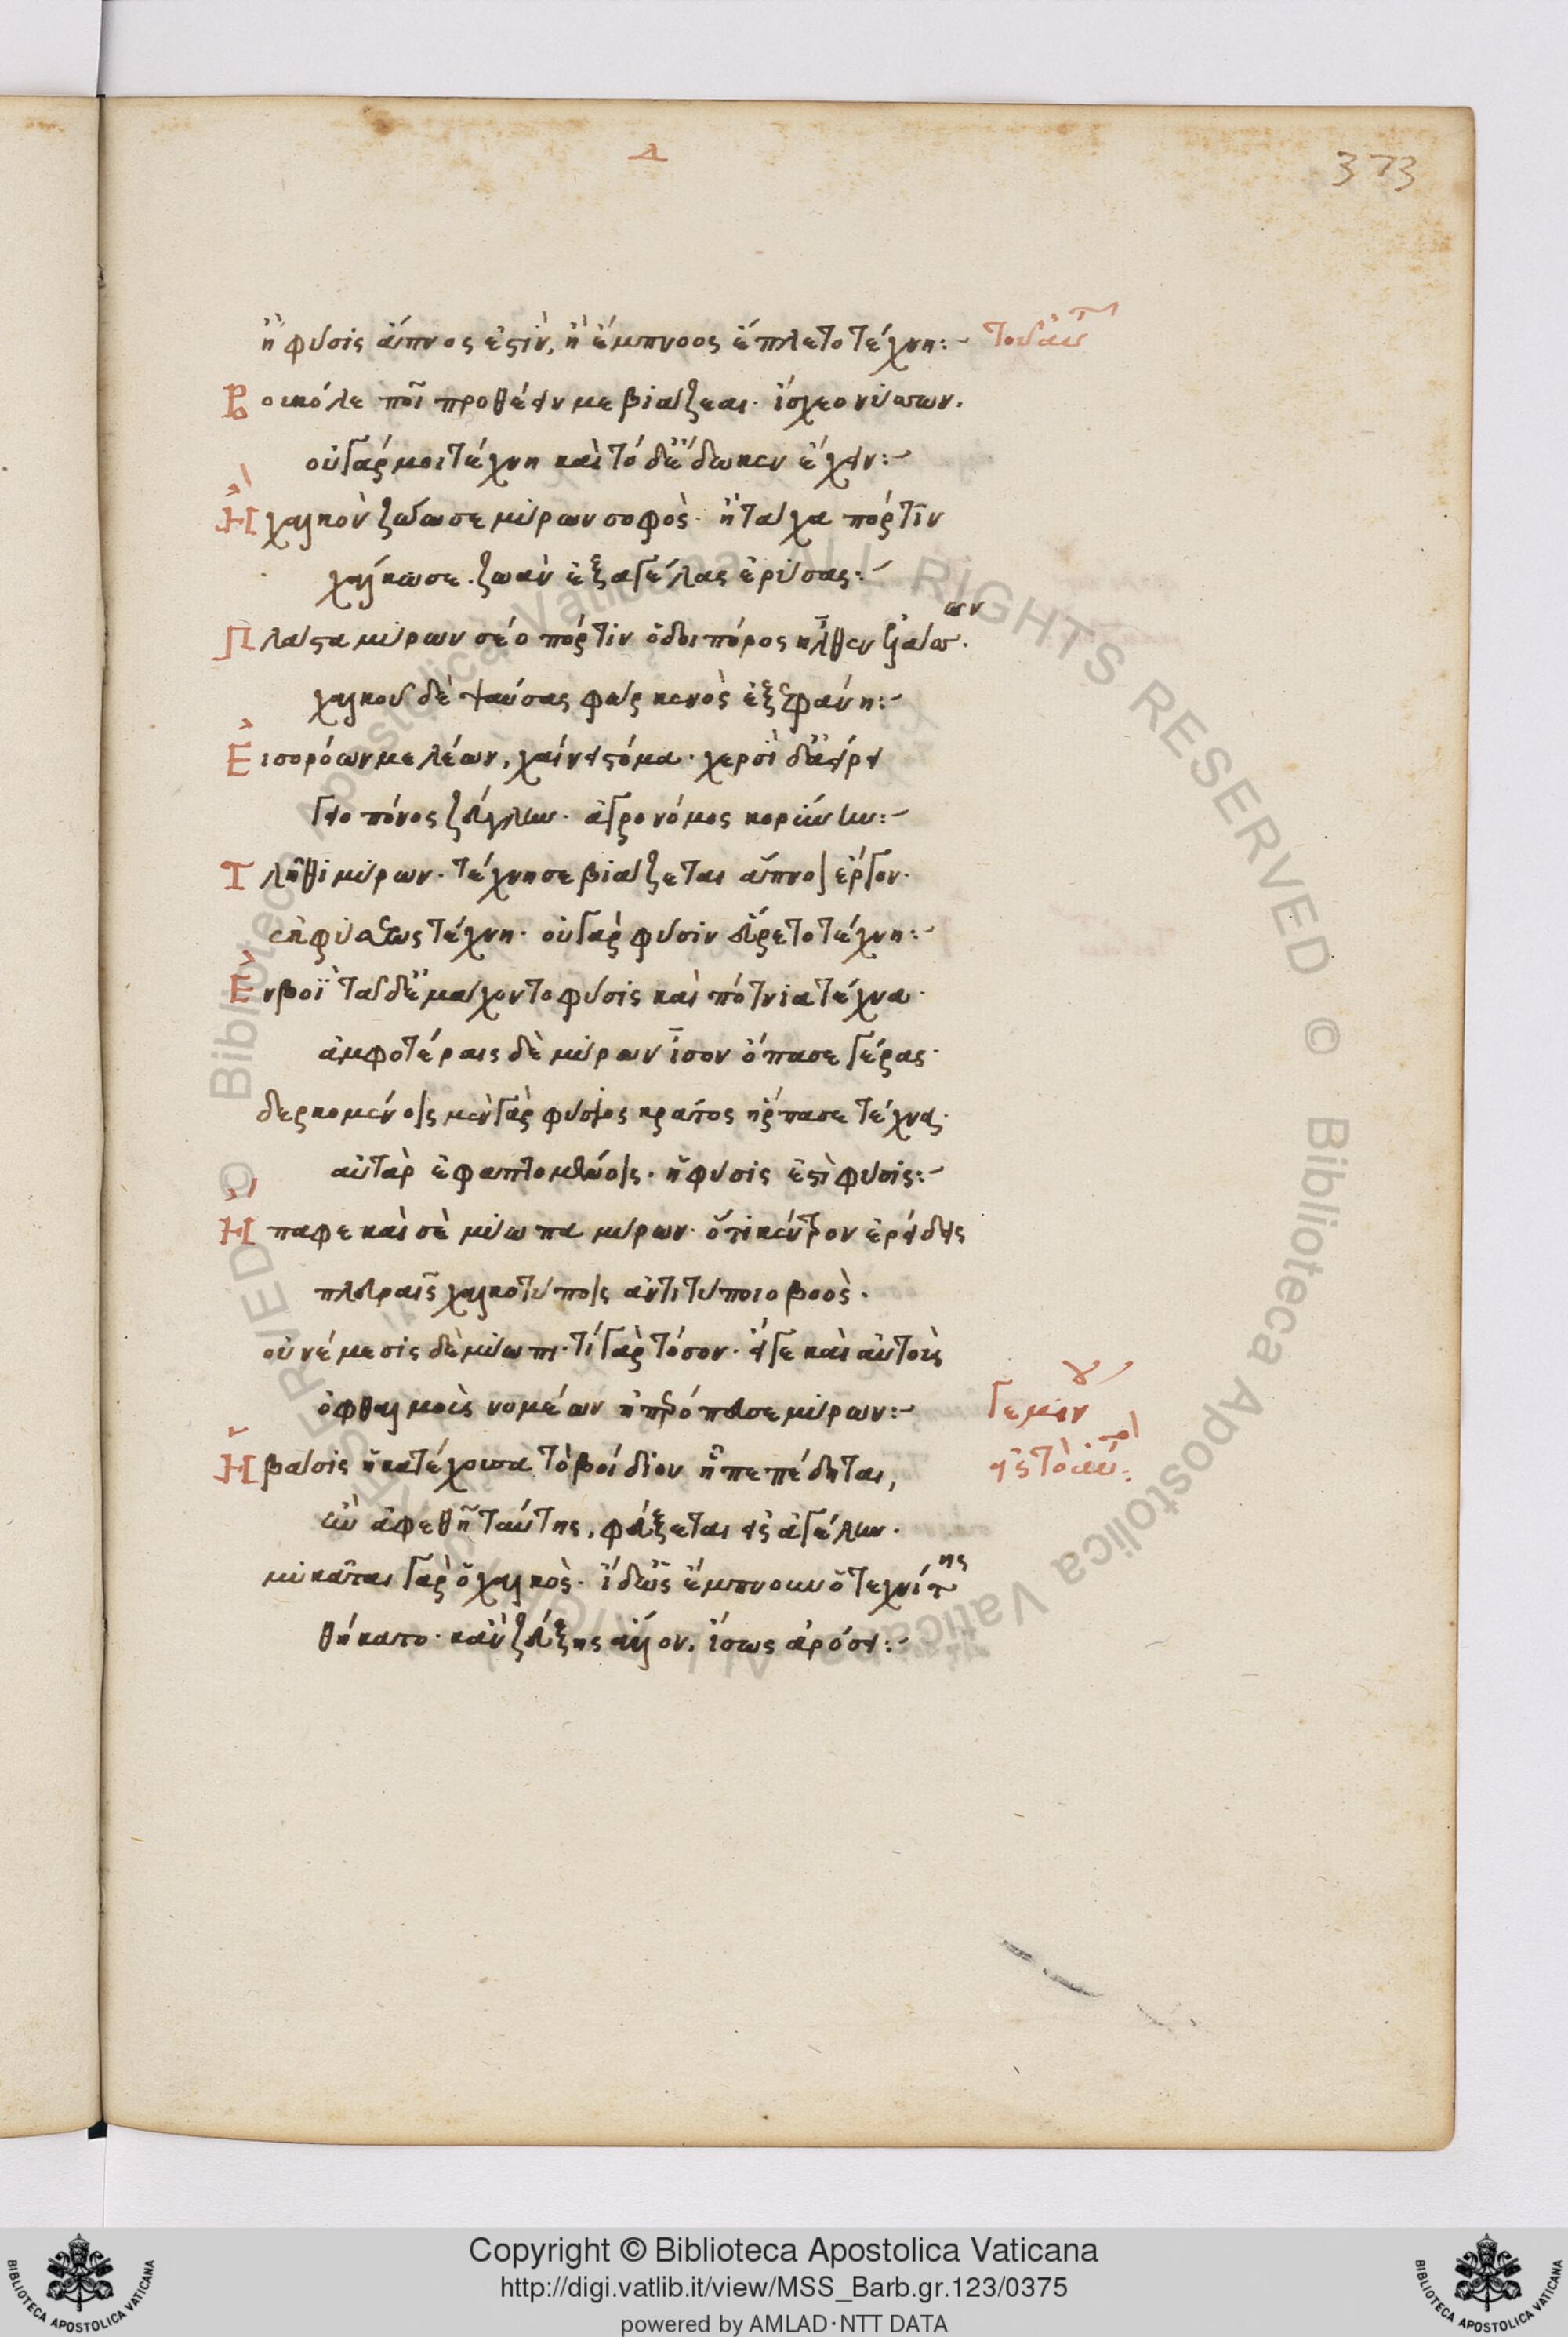 Δ
373
ἢ φύσις ἄπνος ἐστὶν, ἢ ἔμπνοος ἔπλετο τέχνη:-
τοῦ αὐτ
Βουκόλε ποῖ προθέειν με βιάζεαι· ἴσχεο νύσσων.
οὐ γάρ μοι τέχνη καὶ τόδ' ἔδωκεν ἔχειν:-
Ἢ χαλκὸν ζώωσε μύρων σοφὸς· ἢ τάχα πόρτιν
χάλκωσε. ζωὰν ἐξ ἀγέλας ἐρύσας:-
Πλάστα μύρων σέο πόρτιν ὁδοιπόρος ἦλθεν ἐλάσσων.
χαλκοῦ δὲ ψαύσας φὼρ κενὸς ἐξεφάνη:-
Εἰσορόων με λέων, χαίνει στόμα· χερσὶ δ' ἀείρει
γειοπόνος ζεύγλην· ἀγρονόμος κορύνην:-
Τλῆθι μύρων· τέχνη σε βιάζεται ἄπνοον ἔργον·
ἐκ φύσεως τέχνη· οὐ γὰρ φύσιν εὕρετο τέχνη:-
Ἐν βοῒ τᾷδ' ἐμάχοντο φύσις καὶ πότνια τέχνα·
ἀμφοτέραις δὲ μύρων ἶσον ὄπασε γέρας·
δερκομένοις μὲν γὰρ φύσιος κράτος ἥρπασε τέχνας·
αὐτὰρ ἐφαπτομένοις· ἡ φύσις ἐστὶ φύσις:-
Ἤπαφε καὶ σὲ μύωπα μύρων· ὅτι κέντρον ἐρείδεις
πλευραῖς χαλκοτύποις ἀντιτύποιο βοὸς.
οὐ νέμεσις δὲ μύωπι· τί γὰρ τόσον· εἴγε καὶ αὐτοὺς
ὀφθαλμοὺς νομέων ἠπερόπευσε μύρων:-
Γεμίνου
Ἡ βάσις ἡ κατέχουσα τὸ βοΐδιον ᾗ πεπέδηται,
εἰς τὸ αὐτὸ:
ἢν ἀφεθῇ ταύτης, φεύξεται εἰς ἀγέλην.
μυκᾶται γὰρ ὁ χαλκὸς· ἴδ' ὡς ἔμπνουν ὁ τεχνίτης
θήκατο· κἂν ζεύξῃς ἄλλον, ἴσως ἀρόσει:-
Copyright © Biblioteca Apostolica Vaticana
http://digi.vatlib.it/view/MSS_Barb.gr.123/0375
powered by AMLAD·NTT DATA
BIBLIOTECA APOSTOLICA VATICANA
BIBLIOTECA APOSTOLICA VATICANA
© Biblioteca Apostolica Vaticana ALL RIGHTS RESERVED
© Biblioteca Apostolica Vaticana ALL RIGHTS RESERVED